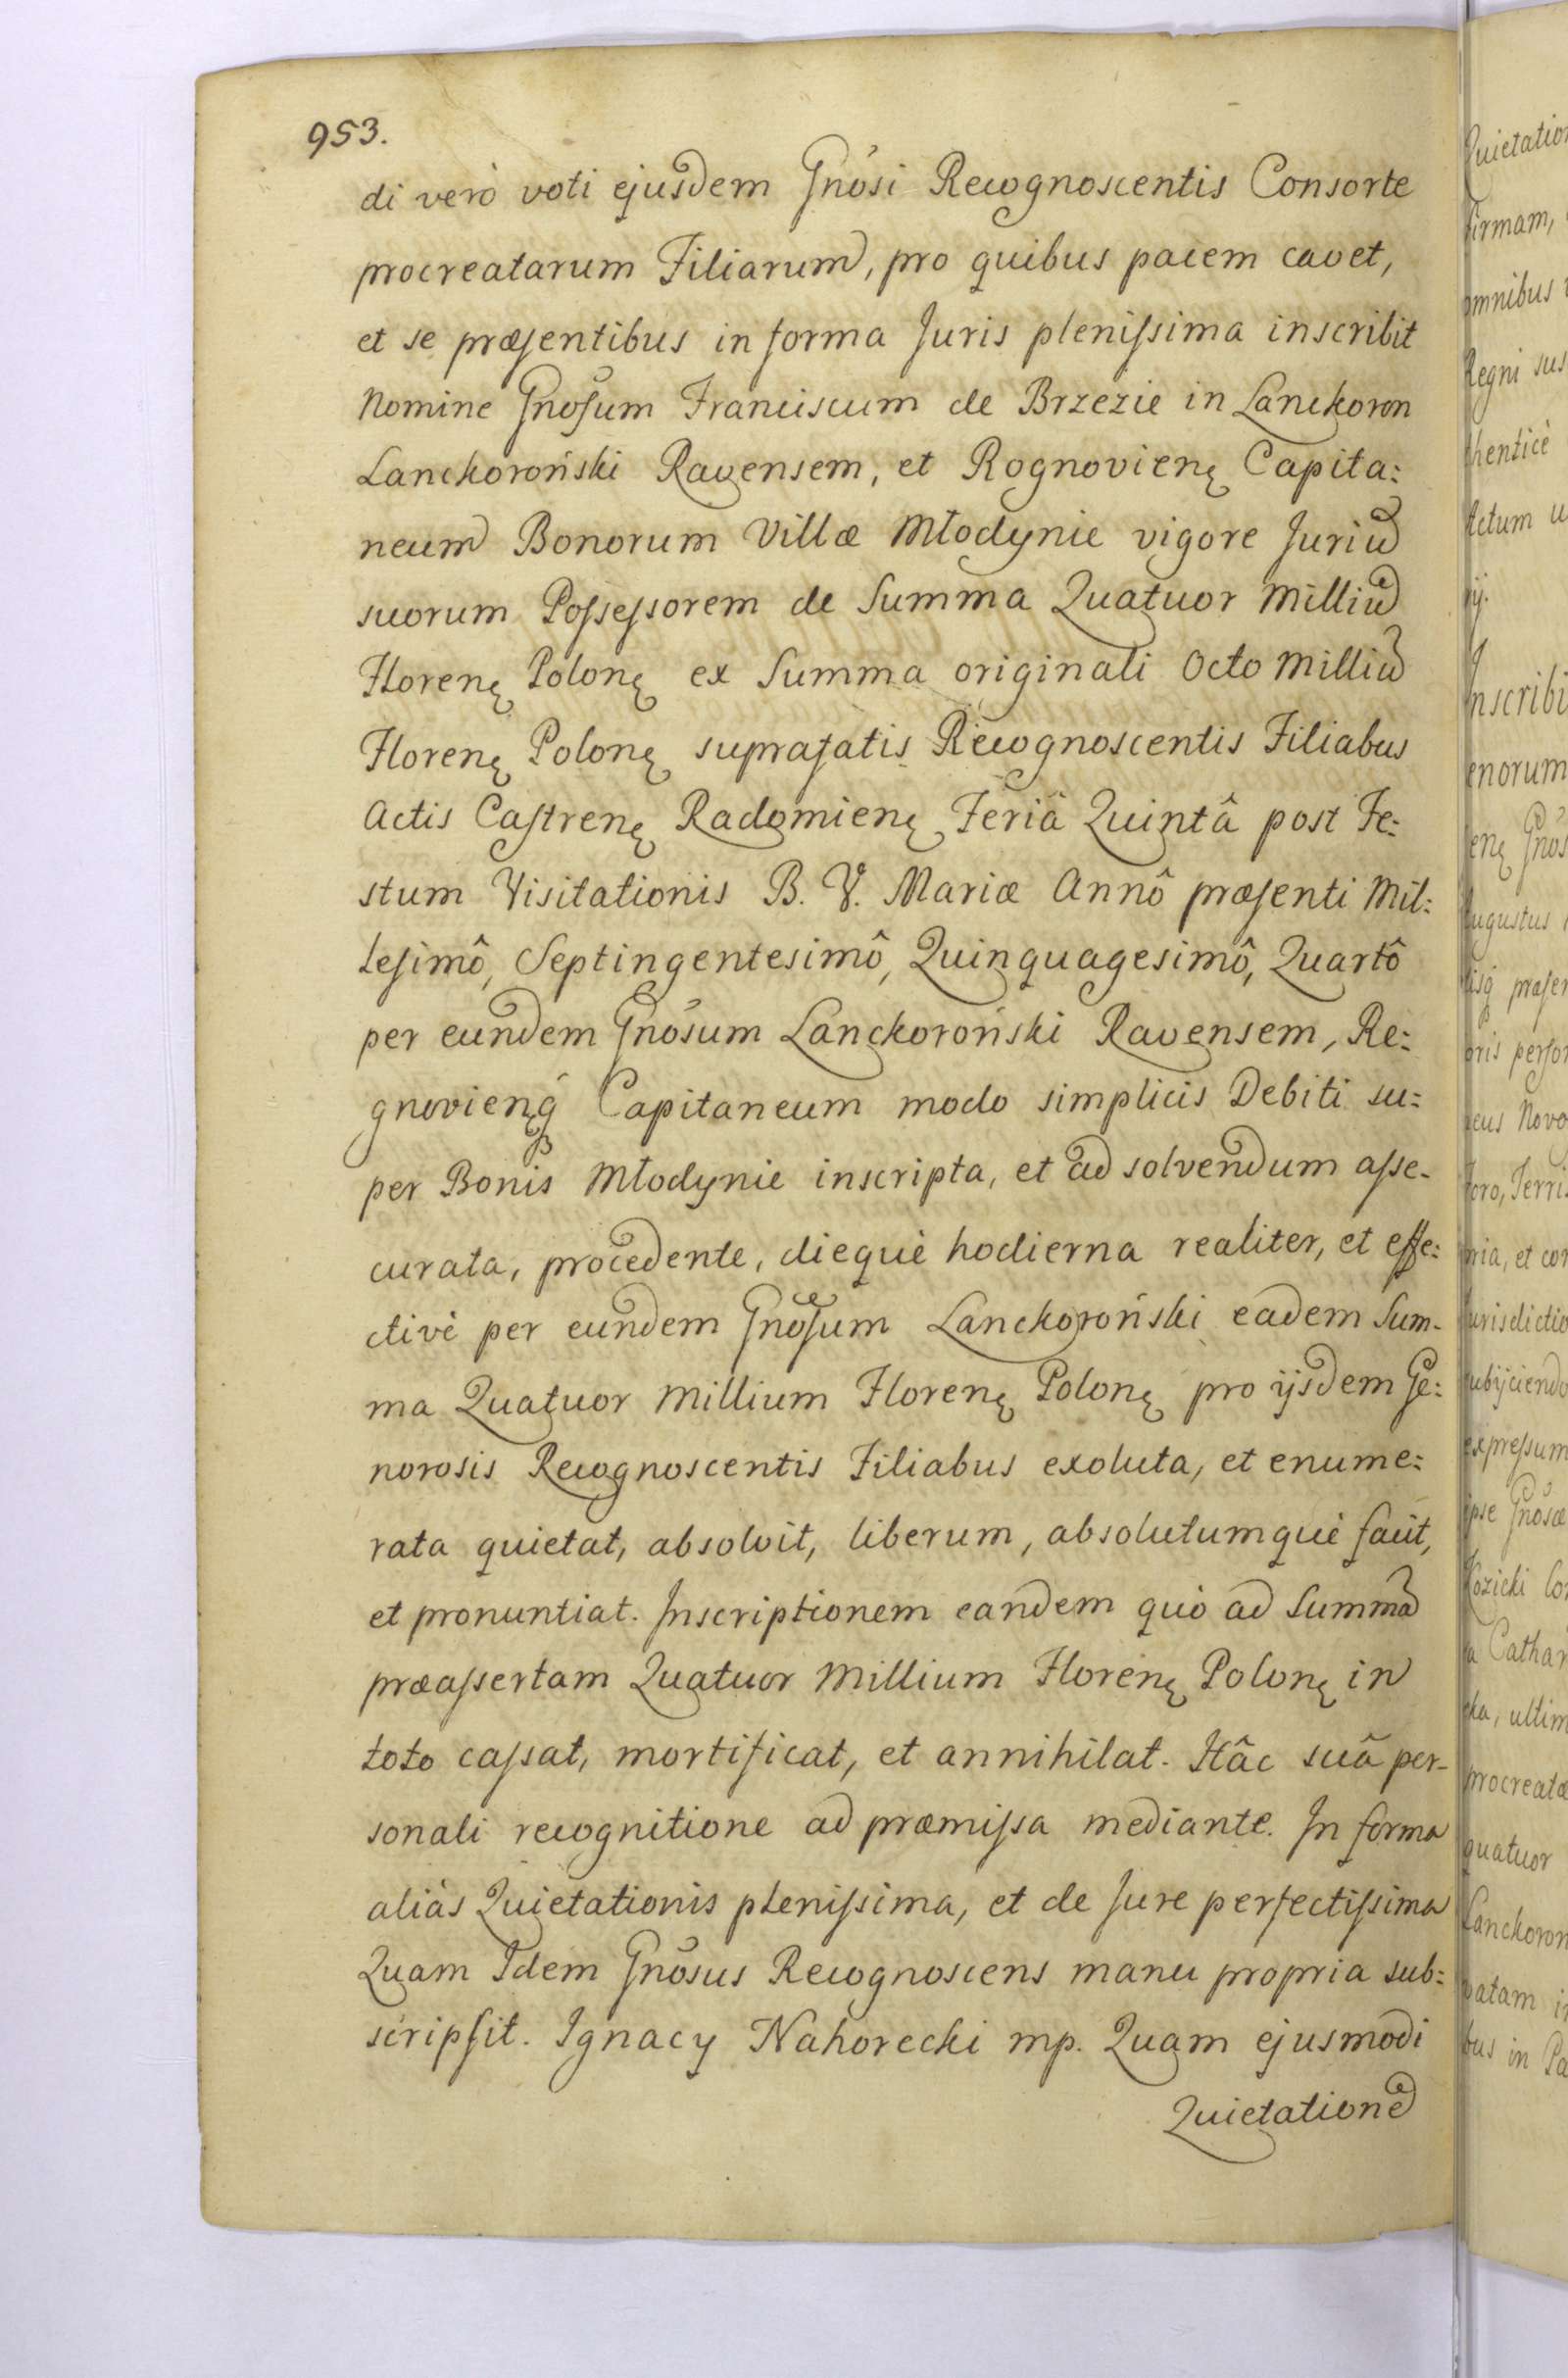 953.
di verò voti ejusdem Gnosi Recognoscentis Consorte
procreatarum Filiarum, pro quibus pacem cavet,
et se præsentibus in forma Juris plenissima inscribit
Nomine Gnosum Franciscum de Brzezie in Lanckoron
Lanckoroński Ravensem, et Rognovienę Capita:
neum Bonorum Villæ Młodynie vigore Juriũ
suorum Possessorem de Summa Quatuor Milliũ
Florenę Polonę ex Summa originali Octo Milliũ
Florenę Polonę suprafatis Recognoscentis Filiabus
Actis Castrenę Radomienę Feriâ Quintâ post Fe:
stum Visitationis B. V. Mariæ Annô præsenti Mil:
lesimô, Septingentesimô, Quinquagesimô, Quartô
per eundem Gnosum Lanckoroński Ravensem, Re:
gnovienq́ Capitaneum modo simplicis Debiti su:
per Bonis Młodynie inscripta, et ad solvendum asse-
curata, procedente, diequè hodierna realiter, et effe:
ctivè per eundem Gnosum Lanckoroński eadem Sum-
ma Quatuor Millium Florenę Polonę pro ijsdem Ge:
norosis Recognoscentis Filiabus exoluta, et enume:
rata quietat, absolvit, liberum, absolutumquè facit,
et pronuntiat. Inscriptionem eandem quò ad Summã
præassertam Quatuor Millium Florenę Polonę in
toto cassat, mortificat, et annihilat. Hâc suâ per-
sonali recognitione ad præmissa mediante. In forma
aliàs Quietationis plenissima, et de Jure perfectissima
Quam Idem Gnosus Recognoscens manu propria sub:
scripsit. Ignacy Nahorecki mp. Quam ejusmodi
Quietationẽ